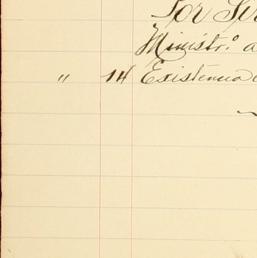 Por Ser
Ministr.o a
" 14 Existencia